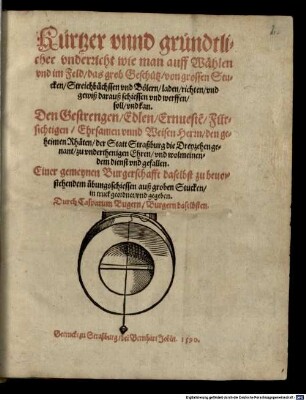 Kurtzer vnnd gründtli-
cher vnderricht wie man auff Wählen
vnd im Feld / das grob Geschütz / von grossen Stu-
cken / Streichbüchssen vnd Bölern / laden / richten / vnd
gewiß darauß schiessen vnd werffen /
soll / vnd kan.
Den Gestrengen / Edlen / Ernueste / Für-
sichtigen / Ehrsamen vnnd Weisen Herrn / den ge-
heimen Rhäten / der Statt Straßburg die Dreyzehen ge-
nant / zu vnderthenigen Ehren / vnd wolmeinen-
dem dienst vnd gefallen.
Einer gemeynen Burgerschafft daselbst zu beuor-
stehendem übungsschiessen auß groben Stucken /
in truck geordnet vnd gegeben.
Durch Casparum Bugern / Burgern daselbsten.
Getruckt zu Straßburg / bei Bernhart Jobin. 1590.